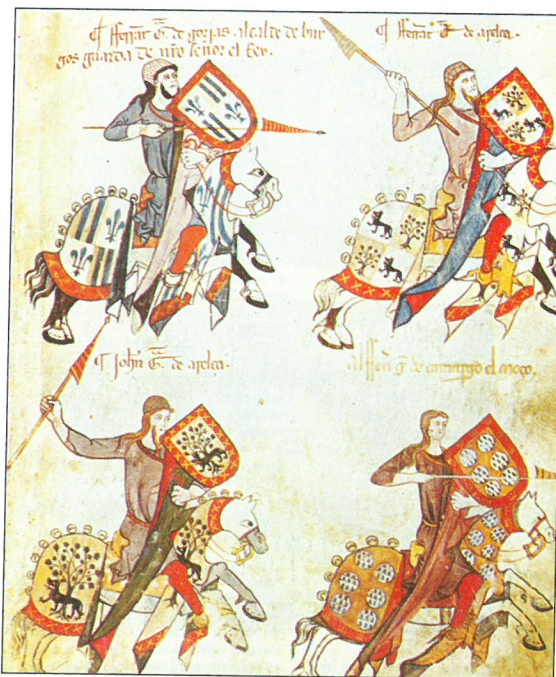 ¶ fferrat Gª. de gorjas alcalde de bur
gos guarda de nro señor el Rey.
¶ fferrat Gª de arelça.
¶ John Gª. de arelça.
alffon gª de camargo el moço.